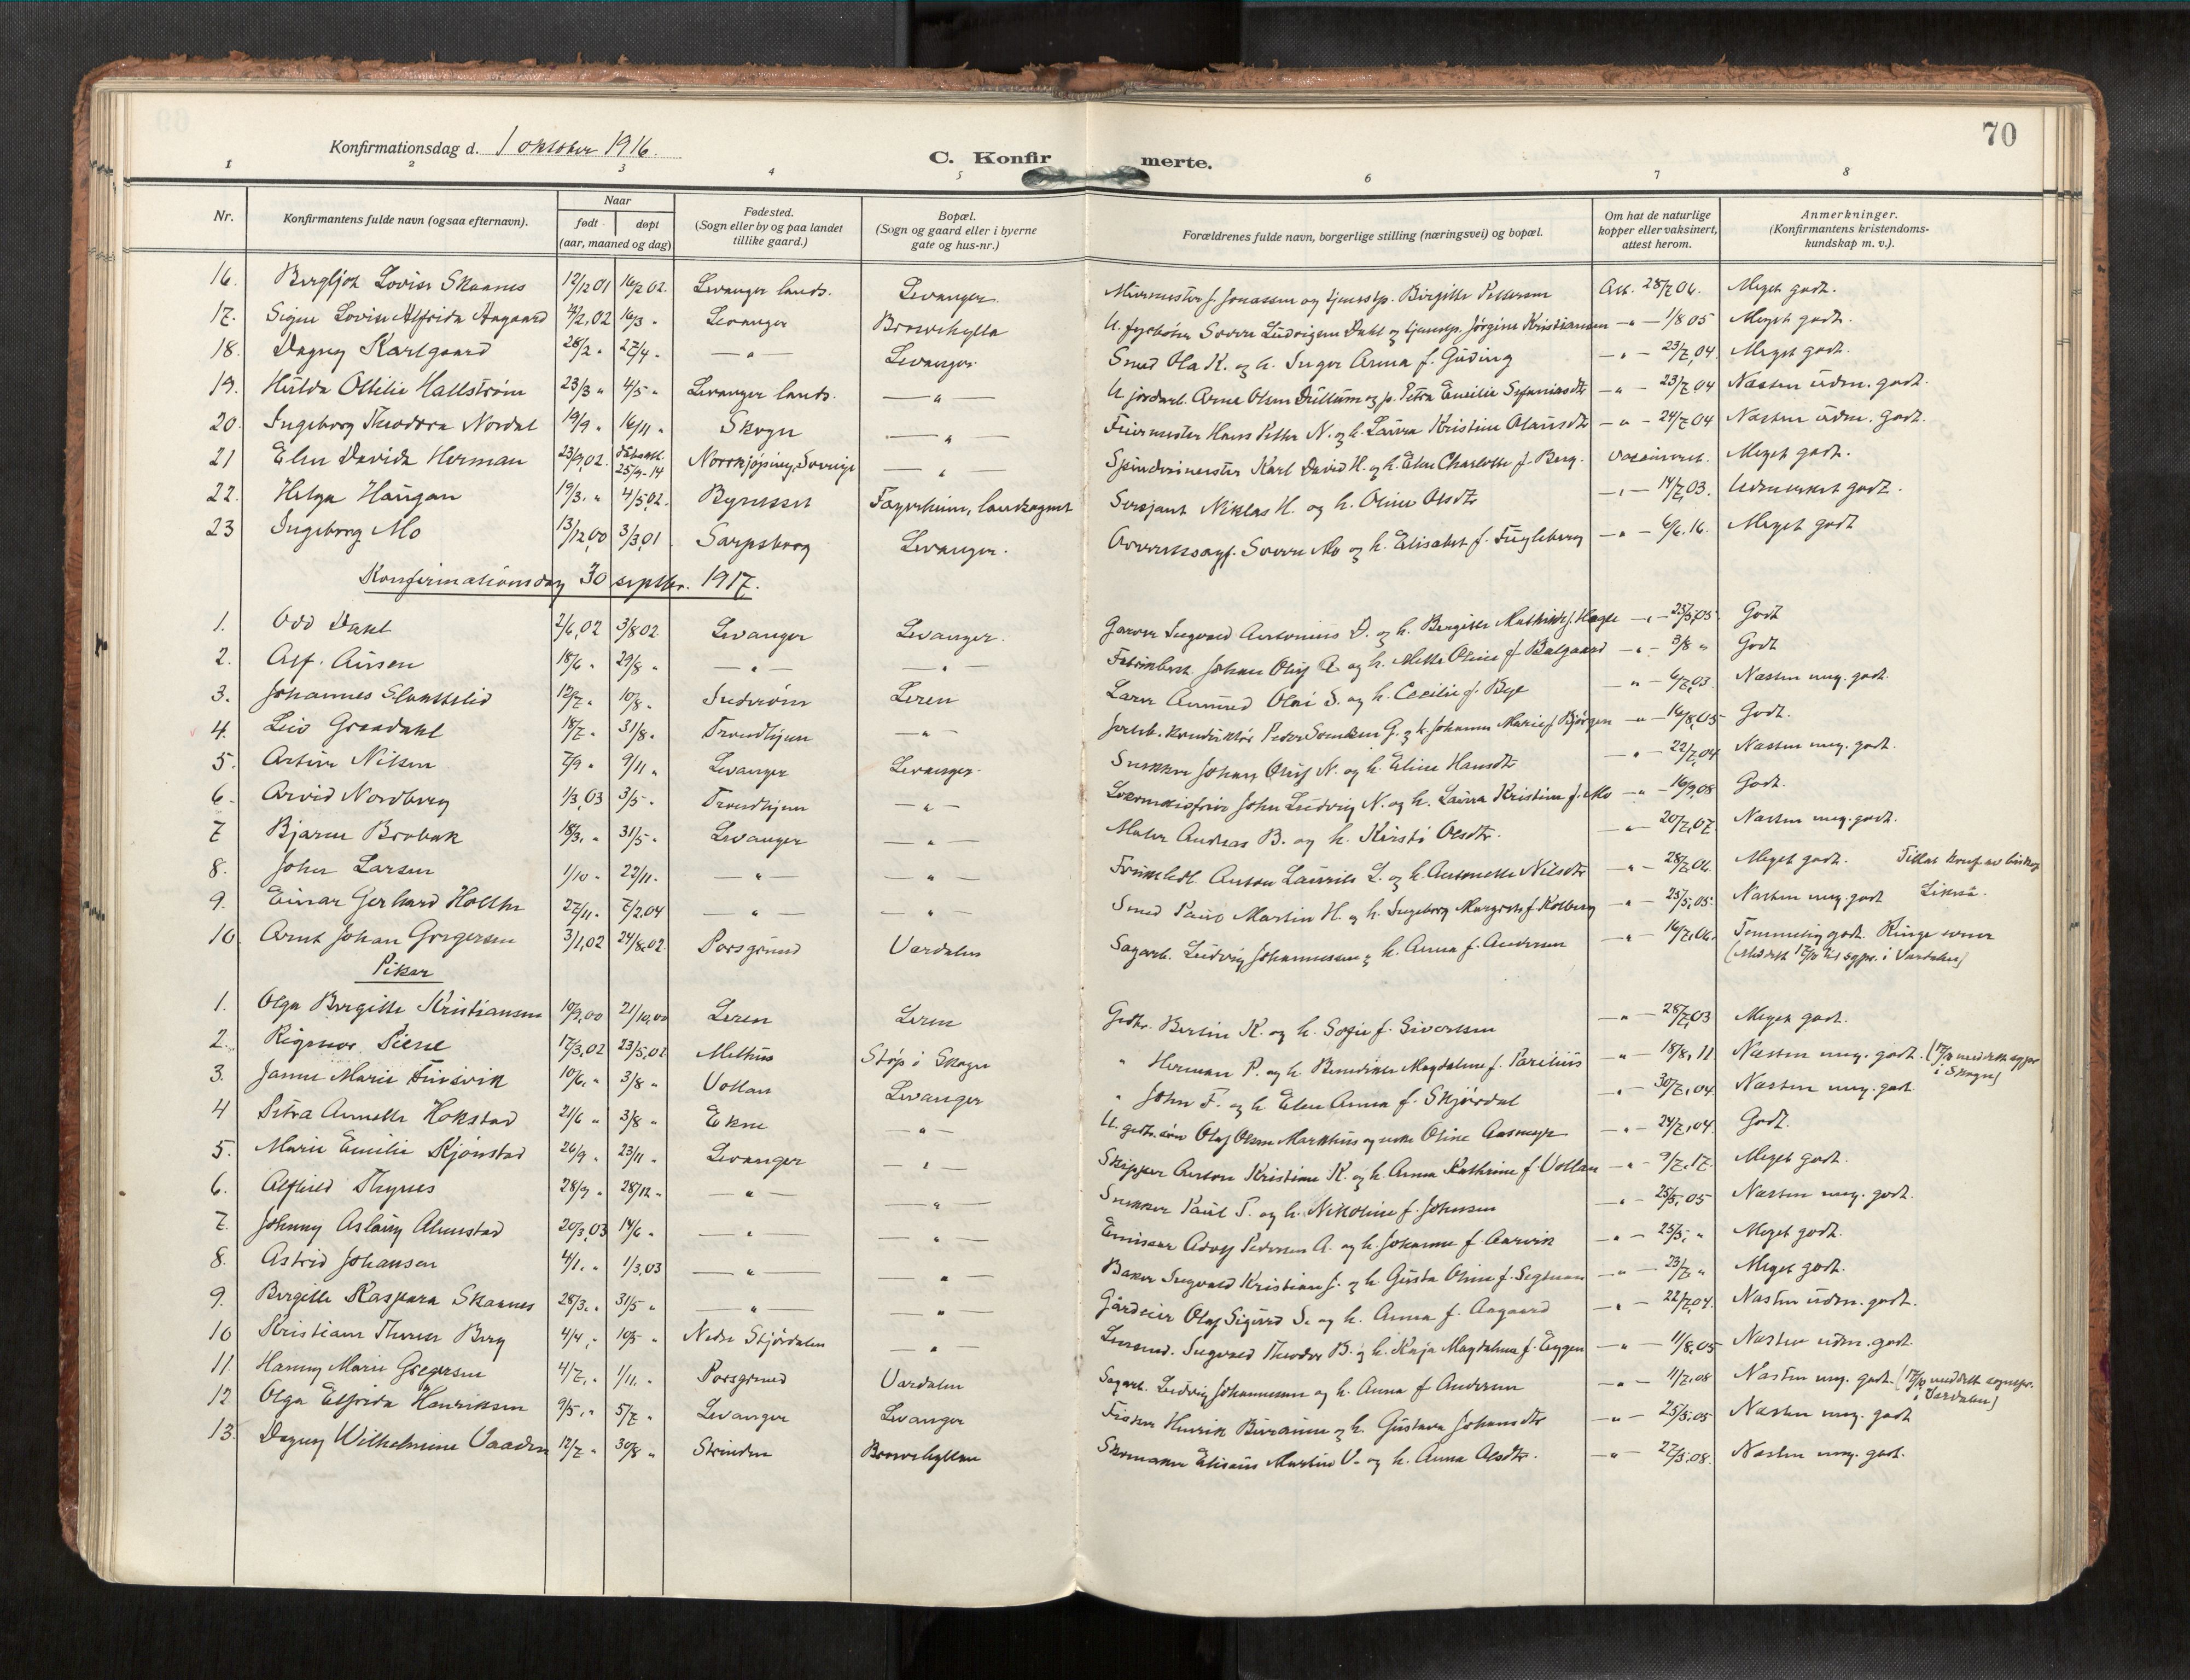 70
Konfirmationsdag d. 1 oktober 1916.
C. Konfirmerte.
1 2 3 4 5 6 7 8
Nr. Konfirmantens fulde navn (ogsaa efternavn). Naar født døpt (aar, maaned og dag) Fødested. (Sogn eller by og paa landet tillike gaard.) Bopæl. (Sogn og gaard eller i byerne gate og hus-nr.) Forældrenes fulde navn, borgerlige stilling (næringsvei) og bopæl. Om hat de naturlige kopper eller vaksinert, attest herom. Anmerkninger. (Konfirmantens kristendomskundskap m. v.).
16. Bergljot Lovise Skaanes 12/12 01 16/2 02. Levanger lands. Levanger Murmester J. Jonassen og tjenestp. Birgitte Pettersen Att. 28/7 06. Meget godt.
17. Signe Lovise Alfrida Aagaard 4/2. 02 16/3 " Levanger Brusvehylla U. fyrbøter Sverre Ludvigsen Dahl og tjenestp. Jørgine Kristiansen — " — 1/8 05 Meget godt.
18. Dagny Karlgaard 28/2 " 27/4 " — " — Levanger Smed Ola K. og h. Inger Anna f. Guding — " — 23/7, 04. Meget godt.
19. Hulda Ottilie Hallstrøm 23/3 " 4/5 " Levanger lands. — " — U. jordarb. Arne Olsen Dullum og p. Petra Emilie Stefaniasdtr — " — 23/7 04 Næsten udm. godt.
20. Ingeborg Theodora Nordal 19/9 " 16/11 " Skogn — " — Feiermester Hans Petter N. og h. Laura Kristine Olausdtr — " — 24/7 04 Næsten udm. godt.
21 Elsa Davida Herman 23/9, 02. 25/9 - 14 Norrkjøping, Sverige — " — Spinderimester Karl David H. og h. Elin Charlotte f. Berg. Vaccineret. Meget godt.
22. Helga Haugan 19/3. " 4/5 02. Byneset Fagerheim, landsognet Sersjant Niklas H. og h. Oline Olsdtr — " — 14/7, 03. Udmerket godt.
23 Ingeborg Mo 13/12, 00 3/3, 01 Sarpsborg Levanger. Overrettssagf. Sverre Mo og h. Elisabet f. Fugleberg — " — 6/6. 16. Meget godt
Konfirmationsdag 30 septbr. 1917.
1. Odd Dahl 2/6, 02 3/8 02 Levanger Levanger. Garver Ingvald Antonius D. og h. Bergitte Mathilde f. Hagle — " — 25/5, 05. Godt
2. Alf Airsen 18/6 " 29/8 " — " — — " — Fabrikbest. Johan Oluf A. og h. Mette Oline f. Balgaard — " — 3/8 " Godt
3. Johannes Slottelid 12/7 " 10/8 " Inderøen Leren Lærer Aamund Olai S. og h. Cecilie f. Bye — " — 6/7, 03. Næsten meg. godt.
4. Leiv Graadahl 18/7 " 31/8 " Trondhjem — " — Jernb. konduktør Peder Svendsen G. og h. Johanna Marie f. Bjørgen — " — 16/8, 05 Godt.
5. Artur Nilsen 7/9 " 9/11 " Levanger Levanger Snekker Johan Oluf N. og h. Eline Hansdtr — " — 22/7, 04 Næsten meg. godt.
6. Arvid Nordberg 1/3, 03 3/5 " Trondhjem — " — Lokomotivfører John Ludvig N. og h. Laura Kristine f. Mo — " — 16/9, 08 Godt.
7 Bjarne Brobak 18/3. " 31/5 " Levanger — " — Maler Andreas B. og h. Kirsti Olsdtr. — " — 20/7, 07 Næsten meg. godt.
8. John Larsen 1/10 " 22/11. — " — — " — Anton Laurits L. og h. Antonette Nilsdtr — " — 28/7 06. Meget godt. Tillat konf. av biskop
9. Einar Gerhard Holthe 27/11. 7/2. 04 — " — — " — Smed Paul Martin H. og h. Ingeborg Margrete f. Kolberg — " — 25/5, 05 Næsten meg. godt Likesaa.
10. Arnt Johan Gregersen 3/1, 02 24/8, 02. Porsgrund Værdalen Sagarb. Ludvig Johannessen og h. Anna f. Andersen — " — 16/7, 06. Temmelig godt. Ringe evner
(Meddelt 17/10 til sgpr. i Værdalen)
Piker
1. Olga Bergitte Kristiansen 10/9, 00 21/10, 00 Leren Leren Gaardbr. Bertin K. og h. Sofie f. Sivertsen — " — 28/7, 03 Meget godt.
2. Rigmor Piene 17/3, 02 23/5, 02 Melhus Støp i Skogn " Herman P. og h. Benedikte Magdalene f. Parelius — " — 18/8, 11. Næsten meg. godt. (17/10 meddelt sogpr. i Skogn)
3. Janne Marie Finsvik 10/6. " 3/8 " Vollan Levanger " John F. og h. Elen Anna f. Skjørdal — " — 30/7, 04. Næsten meg. godt
4 Petra Annette Hokstad 21/6 " 3/8 " Ekne — " — U. gdbr. søn Olaf Olsen Markhus og enke Oline Aasmyr — " — 24/7, 04. Godt.
5. Marie Emilie Rjønstad 20/9 " 23/11 " Levanger — " — Skipper Anton Kristian R. og h. Anna Kathrine f. Vollan — " — 9/7. 17. Meget godt.
6. Alfhild Thynes 28/9 " 28/12 " — " — — " — Snekker Paul T. og h. Nikoline f. Johnsen — " — 25/5, 05 Næsten meg. godt.
7. Johnny Aslaug Almestad 20/3, 03 14/6 " — " — — " — Emissær Adolf Pedersen A. og h. Johanne f. Aarvik — " — 25/5, " Meget godt.
8. Astrid Johansen 4/1. " 1/3, 03 — " — — " — Baker Ingvald Kristian J. og h. Gusta Oline f. Segtnan — " — 23/7, " Meget godt.
9. Bergitte Kaspara Skaanes 28/3. " 31/5 " — " — " Gårdeier Olaf Sigurd S. og h. Anna f. Aagaard — " — 22/7, 04. Næsten udm. godt.
10 Kristiane Therese Berg 4/4, " 10/5 " Nedre Stjørdalen — " — Lensmd. Ingvald Theodor B. og h. Kaja Magdalena f. Eggen — " — 11/8, 05 Næsten udm. godt.
11. Hanny Marie Gregersen 4/7, " 1/11. " Porsgrund Værdalen Sagarb. Ludvig Johannessen og h. Anna f Andersen — " — 11/7, 08 Næsten meg. godt. (17/10 meddelt sognepr. i Værdalen)
12 Olga Elfrida Henriksen 9/5, " 5/7 " Levanger Levanger Fisker Henrik og h. Gustava Johansdtr — " — 25/5, 05 Næsten meg. godt
13. Dagny Wilhelmine Vaaden 12/7 " 30/8 " Strinden Brusvehyllen Skomaker Elisæus Martin V. og h. Anna Olsdtr. — " — 27/3, 08. Næsten meg. godt.